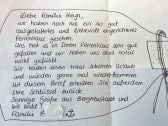 Liebe Familie Heyn,
wir haben noch nie ein so gut
ausgestattetes und liebevoll eingerichtetes
Ferienhaus gesehen.
Uns hat es in Ihrem Ferienhaus sehr gut
gefallen und wir haben uns dort total
wohl gefühlt.
Wir hatten einen total schönen Urlaub
und würden gerne mal wiederkommen.
Mit diesem Brief erhalten Sie außerdem
Ihre Schlüssel zurück.
Sonnige Grüße aus
und bis bald!
Familie